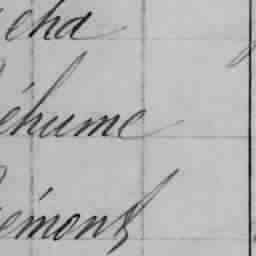 cha
éhume
émont